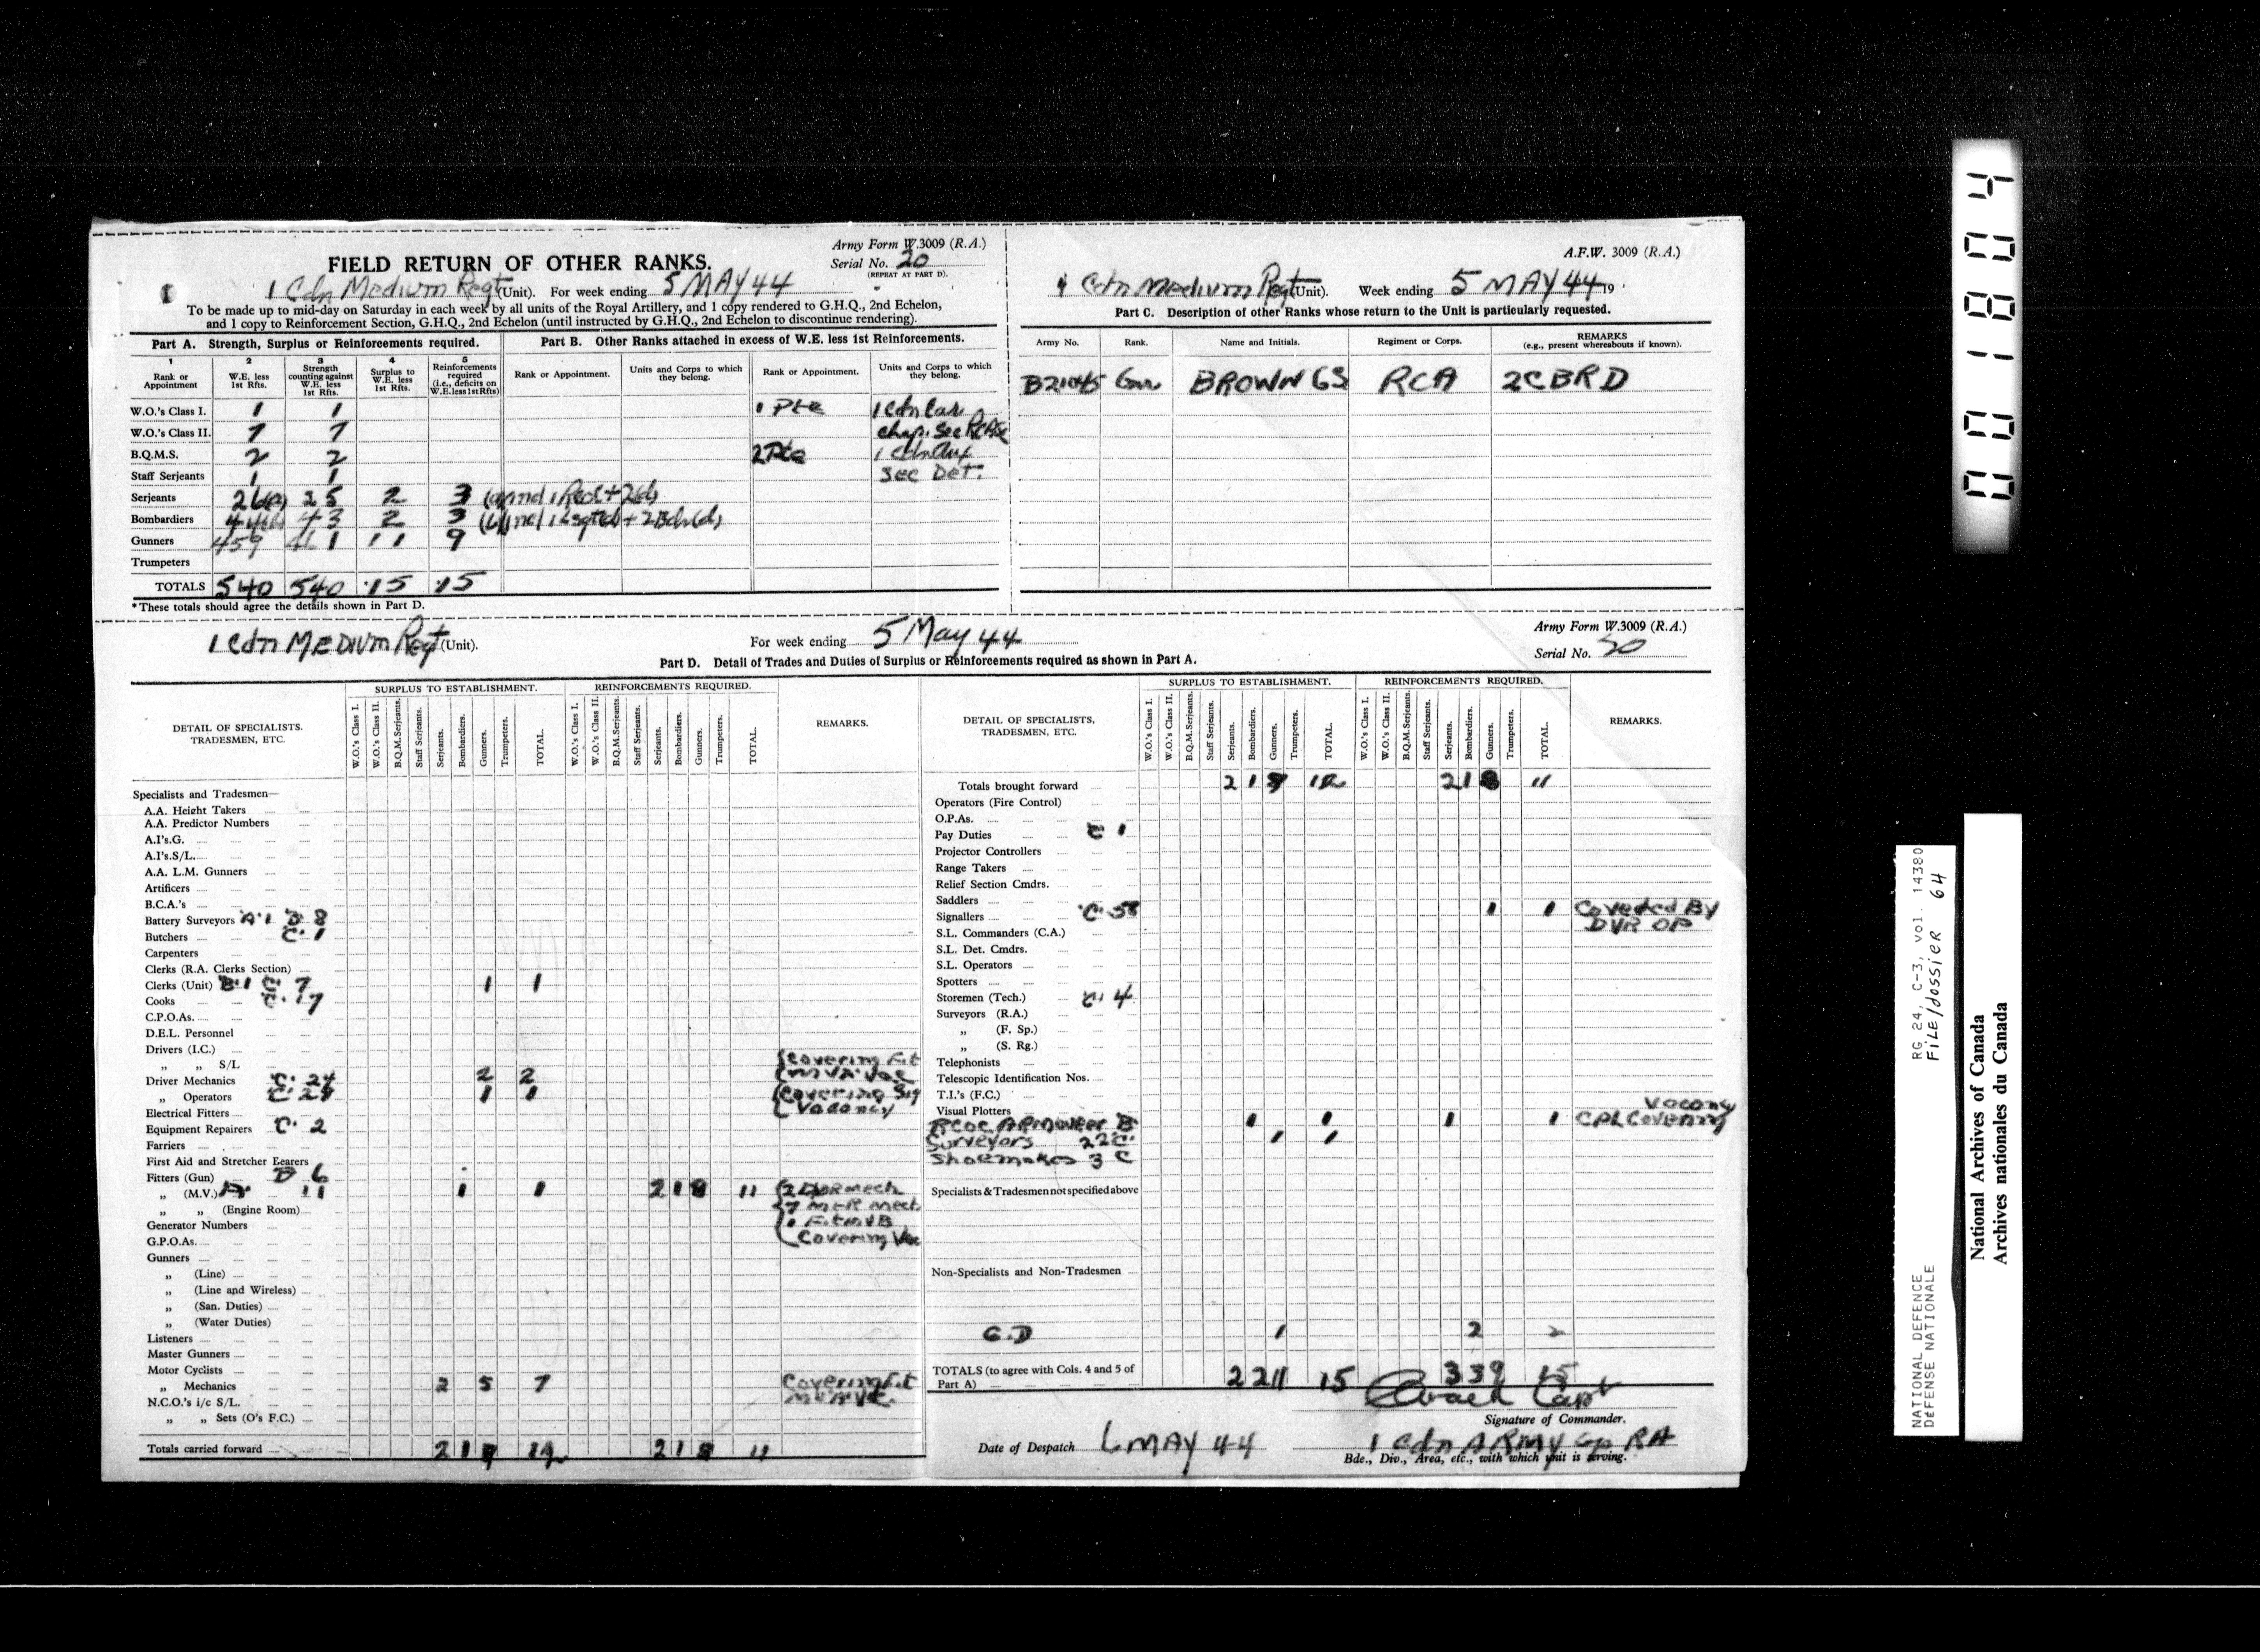 Army Form W.3009 (R.A.)
FIELD RETURN OF OTHER RANKS.
Serial No. 20
(REPEAT AT PART D).
1 Cdn Medium Regt (Unit). For week ending 5 MAY 44
To be made up to mid-day on Saturday in each week by all units of the Royal Artillery, and 1 copy rendered to G.H.Q., 2nd Echelon,
and 1 copy to Reinforcement Section, G.H.Q., 2nd Echelon (until instructed by G.H.Q., 2nd Echelon to discontinue rendering).
Part A. Strength, Surplus or Reinforcements required.
Part B. Other Ranks attached in excess of W.E. less 1st Reinforcements.
1 2 3 4 5
Rank or Appointment
W.E. less 1st Rfts.
Strength counting against W.E. less 1st Rfts.
Surplus to W.E. less 1st Rfts.
Reinforcements required (i.e., deficits on W.E. less 1st Rfts)
Rank or Appointment.
Units and Corps to which they belong.
Rank or Appointment.
Units and Corps to which they belong.
W.O.'s Class I. 1 1 1 Pte 1 Cdn
W.O.'s Class II. 7 7 chap. Sec
B.Q.M.S. 2 2 2 Pte 1 Cdn Aux
Staff Serjeants 1 1 Sec Det.
Serjeants 26(a) 25 2 3
Bombardiers 44(b) 43 2 3
Gunners 459 461 11 9
Trumpeters
TOTALS 540 540 15 15
*These totals should agree the details shown in Part D.
A.F.W. 3009 (R.A.)
1 Cdn Medium Regt (Unit). Week ending 5 MAY 44 19
Part C. Description of other Ranks whose return to the Unit is particularly requested.
Army No.
Rank.
Name and Initials.
Regiment or Corps.
REMARKS
(e.g., present whereabouts if known).
B21045 Gnr. BROWN GS RCA 2CBRD
1 Cdn MEDIUM Regt (Unit).
For week ending 5 May 44
Army Form W.3009 (R.A.)
Serial No. 20
Part D. Detail of Trades and Duties of Surplus or Reinforcements required as shown in Part A.
DETAIL OF SPECIALISTS, TRADESMEN, ETC.
SURPLUS TO ESTABLISHMENT.
REINFORCEMENTS REQUIRED.
REMARKS.
W.O.'s Class I.
W.O.'s Class II.
B.Q.M.Serjeants.
Staff Serjeants.
Serjeants.
Bombardiers.
Gunners.
Trumpeters.
TOTAL.
W.O.'s Class I.
W.O.'s Class II.
B.Q.M.Serjeants.
Staff Serjeants.
Serjeants.
Bombardiers.
Gunners.
Trumpeters.
TOTAL.
Specialists and Tradesmen—
A.A. Height Takers
A.A. Predictor Numbers
A.I's.G.
A.I's.S/L.
A.A. L.M. Gunners
Artificers
B.C.A.'s
Battery Surveyors A. 1 B 8
Butchers C. 1
Carpenters
Clerks (R.A. Clerks Section)
Clerks (Unit) B.1 C. 7 1 1
Cooks C. 17
C.P.O.As.
D.E.L. Personnel
Drivers (I.C.)
„ „ S/L Covering Fit
Driver Mechanics C. 24 2 2
„ Operators 1 1 Covering Sig
Electrical Fitters Vacancy
Equipment Repairers C. 2
Farriers
First Aid and Stretcher Bearers
Fitters (Gun) B 6
„ (M.V.) 11 1 1 2 1 8 11
„ „ (Engine Room) 7 Mech
Generator Numbers
G.P.O.As. Covering Vac
Gunners
„ (Line)
„ (Line and Wireless)
„ (San. Duties)
„ (Water Duties)
Listeners
Master Gunners
Motor Cyclists
„ Mechanics 2 5 7 Covering Fit
N.C.O.'s i/c S/L.
„ „ Sets (O's F.C.)
Totals carried forward 2 1 9 12 2 1 8 11
DETAIL OF SPECIALISTS, TRADESMEN, ETC.
SURPLUS TO ESTABLISHMENT.
REINFORCEMENTS REQUIRED.
REMARKS.
W.O.'s Class I.
W.O.'s Class II.
B.Q.M.Serjeants.
Staff Serjeants.
Serjeants.
Bombardiers.
Gunners.
Trumpeters.
TOTAL.
W.O.'s Class I.
W.O.'s Class II.
B.Q.M.Serjeants.
Staff Serjeants.
Serjeants.
Bombardiers.
Gunners.
Trumpeters.
TOTAL.
Totals brought forward 2 1 9 12 2 1 8 11
Operators (Fire Control)
O.P.As.
Pay Duties C 1
Projector Controllers
Range Takers
Relief Section Cmdrs.
Saddlers
Signallers C. 58 1 1 Covered By
S.L. Commanders (C.A.) DVR OP
S.L. Det. Cmdrs.
S.L. Operators
Spotters
Storemen (Tech.) C. 4
Surveyors (R.A.)
„ (F. Sp.)
„ (S. Rg.)
Telephonists
Telescopic Identification Nos.
T.I.'s (F.C.)
Visual Plotters Vacancy
RCOC ARMOURER B 1 1 1 1 CPL Covering
Surveyors 22 C. 1 1
Shoemakers 3 C
Specialists & Tradesmen not specified above
Non-Specialists and Non-Tradesmen
G.D 1 2 2
TOTALS (to agree with Cols. 4 and 5 of Part A) 2 2 11 15 3 3 9 15
Capt
Signature of Commander.
Date of Despatch 6 MAY 44
1 Cdn ARMY Gp RA
Bde., Div., Area, etc., with which unit is serving.
001804
NATIONAL DEFENCE RG 24, C-3, vol. 14380
DéFENSE NATIONALE FiLE/dossier 64
National Archives of Canada
Archives nationales du Canada